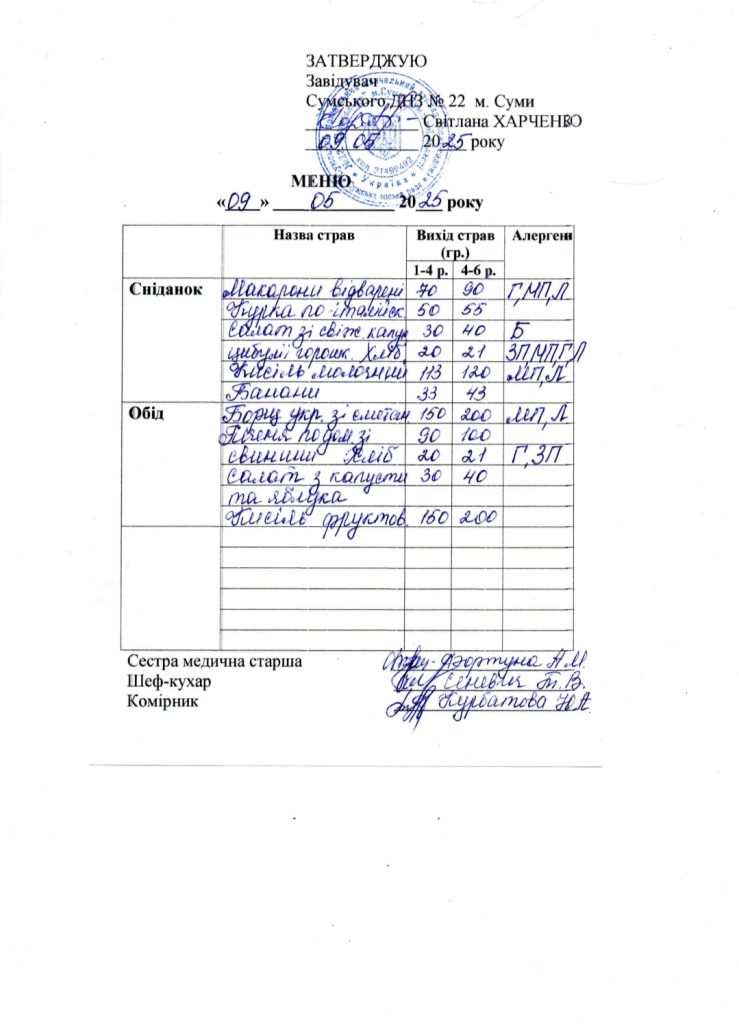 ЗАТВЕРДЖУЮ
Завідувач
Сумського ДНЗ № 22 м. Суми
Світлана ХАРЧЕНКО
09 05 2025 року
МЕНЮ
«09» 05 2025 року
Назва страв Вихід страв (гр.) Алергени
1-4 р. 4-6 р.
Сніданок Макарони відварені 70 90 Г,МП,Л
Курка по-італійск. 50 55
Салат зі свіж. капус 30 40 Б
цибулі, горошк. Хліб 20 21 ЗП,МП,Г,Л
Кисіль молочний 113 120 МП,Л
Банани 33 43
Обід Борщ укр. зі сметан. 150 200 МП,Л
Печеня по дом. зі 90 100
свинини Хліб 20 21 Г,ЗП
Салат з капусти 30 40
та яблука
Кисіль фруктов. 150 200
Сестра медична старша Фортуна А.М.
Шеф-кухар Сеневич Т.В.
Комірник Курбатова Ю.А.